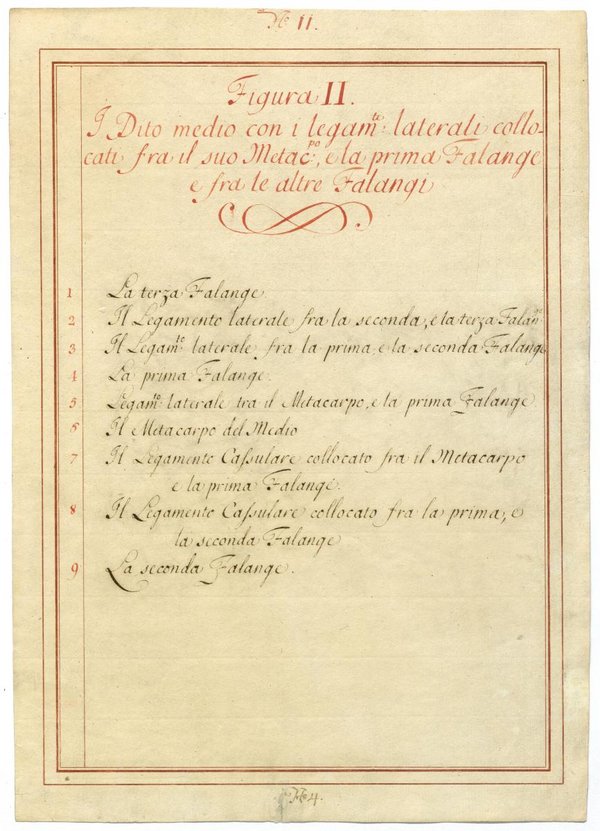 No 11.
Figura II.
Il Dito medio con i legam.ti laterali collo-
cati fra il suo Metac.po, e la prima Falange
e fra le altre Falangi
1 La terza Falange
2 Il Legamento laterale fra la seconda, e la terza Falan.e
3 Il Legam.to laterale fra la prima, e la seconda Falange
4 La prima Falange.
5 Legam.to laterale tra il Metacarpo, e la prima Falange.
6 Il Metacarpo del Medio
7 Il Legamento Cassulare collocato fra il Metacarpo
e la prima Falange.
8 Il Legamento Cassulare collocato fra la prima, e
la seconda Falange
9 La seconda Falange.
No 4.